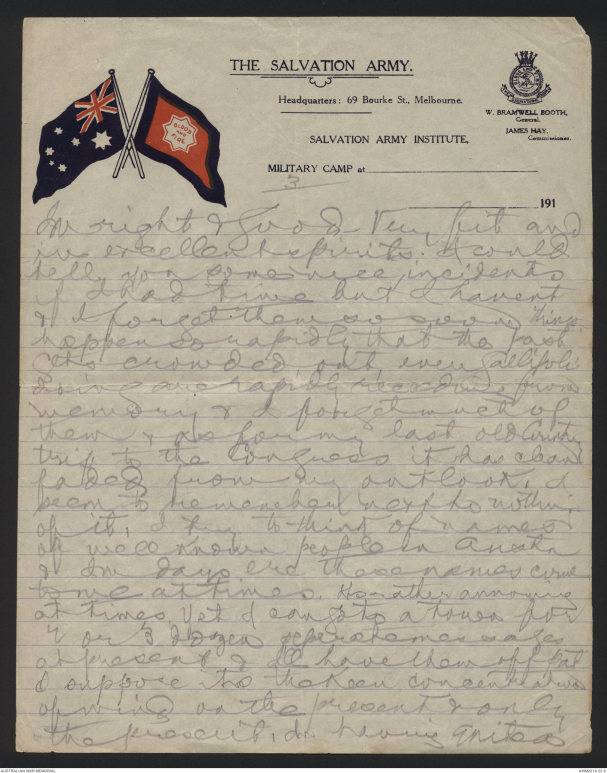 THE SALVATION ARMY.
Headquarters: 69 Bourke St., Melbourne.
W. BRAMWELL BOOTH,
General.
JAMES HAY,
Commissioner.
SALVATION ARMY INSTITUTE,
MILITARY CAMP at
BLOOD
AND
FIRE
3
191
I'm right & good - Very fit and
in excellent spirits. I could
tell you some nice incidents
if I had time but I havent
& I forget them so soon, things
happen so rapidly that the past
gets crowded out, even Gallipoli
are rapidly receding from
memory & I forget much of
them & as for my last old Country
trip to the Congress it has clean
faded from my outlook, I
seem to remember next to nothing
of it, I try to think of names
of well known people in Austra
& I'm days ere these names come
to me at times. Its rather annoying
at times Yet I can go to a town for
2 or 3 dozen separate messages
at present & I'll have them off pat
I suppose its the keen concentration
of mind on the present & only
the present, I'm having quite a
AUSTRALIAN WAR MEMORIAL